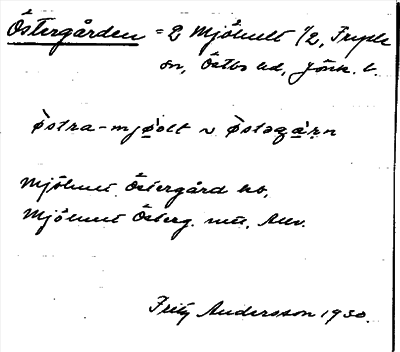 Östergården = 2 Mjöhult 1/2, Fryele
sn, Östbo hd, Jönk. l.
östra-mjöolt ~ östəgårn
Mjöhult Östergård kb,
Mjöhult Österg. mtl.
Fritz Andersson 1930.